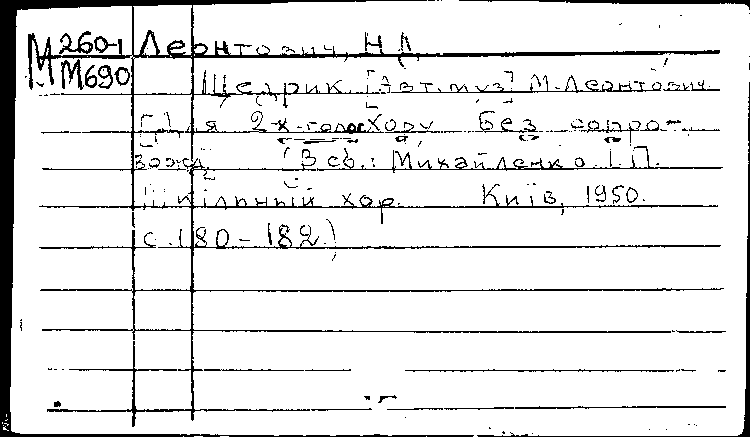 М 260-1 Леонтович, Н Д.
М690
Щедрик. [Авт. муз] М. Леонтович.
[Для 2-х-голос хору без сопро-
вожд. (В сб.: Михайленко І. П.
Шкільний хор. Київ, 1950.
с. 180-182)